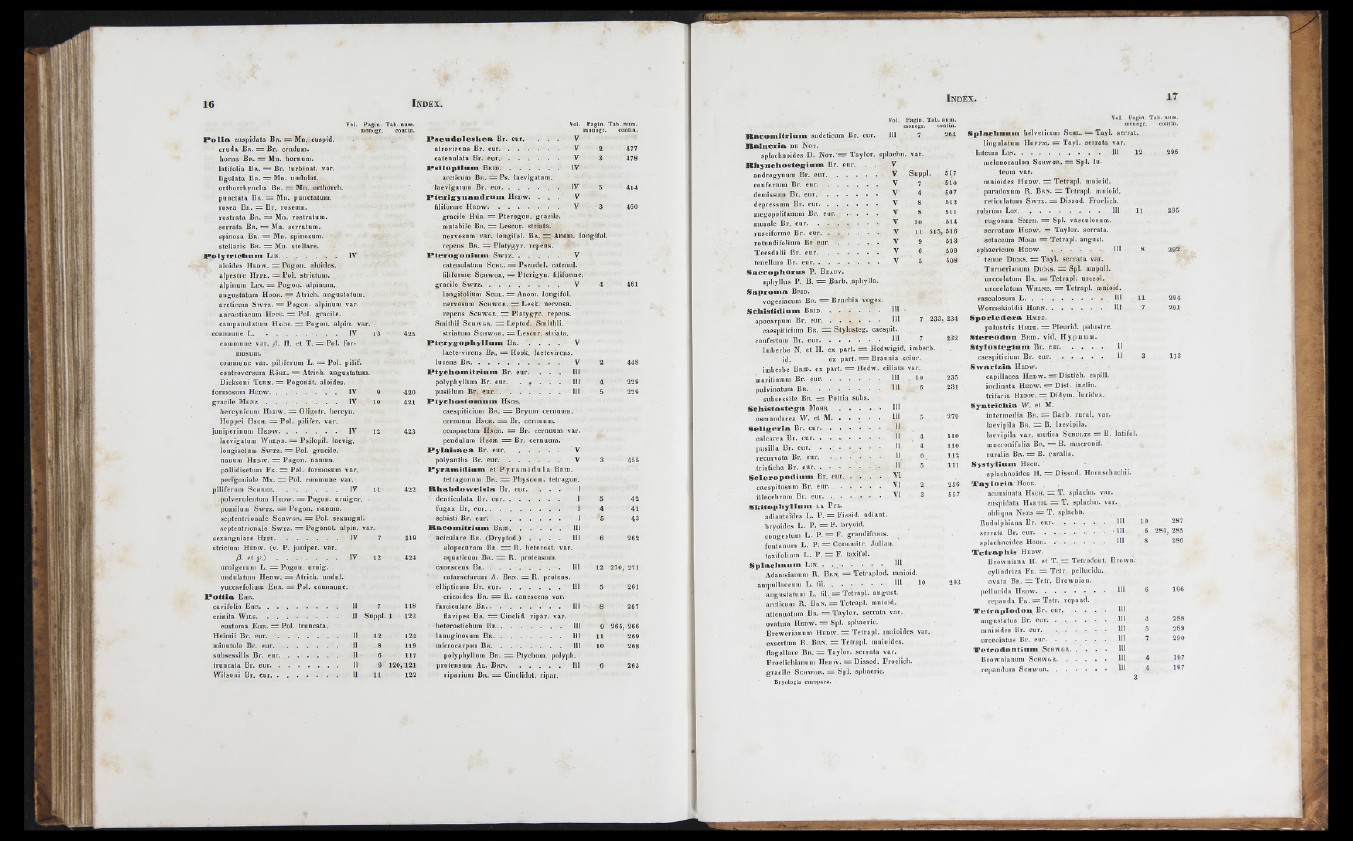 16
INDEX.
Vol. Pagin. Tab. num.
monogr. contin.
Polla cuspidata BR. = Mn. cuspid.
cruda BR. = Br. crudum.
horna BR. = Mn. hornum.
latifolia BR. = Br. turbinat. var.
ligulata BR. = Mn. undulat.
orthorrhyncha BR. = Mn. orthorrh.
punctata BR. = Mn. punctatum.
rosea BR. = Br. roseum.
rostrata BR. = Mn. rostratum.
serrata BR. = Mn. serratum.
spinosa BR. = Mn. spinosum.
stellaris BR. = Mn. stellare.
Polytrichum LIN. IV
aloides HEDW. = Pogon. aloides.
alpestre HPPE. = Pol. strictum.
alpinum LIN. = Pogon. alpinum.
angustatum HOOK. = Atrich. angustatum.
arcticum SWTZ. = Pogon. alpinum var.
aurantiacum HPPE. = Pol. gracile.
campanulatum HOOK. = Pogon. alpin. var.
commune L. IV 13 425
commune var. β. H. et T. = Pol. formosum.
commune var. piliferum L. = Pol. pilif.
controversum RÖHL. = Atrich. angustatum.
Dicksoni TURN. = Pogonat. aloides.
formosum HEDW. IV 9 420
gracile MENZ. IV 10 421
hercynicum HEDW. = Oligotr. hercyn.
Hoppei HSCH. = Pol. pilifer. var.
juniperinum HEDW. IV 12 423
laevigatum WHLBG. = Psilopil. laevig.
longisetum SWTZ. = Pol. gracile.
nanum HEDW. = Pogon. nanum.
pallidisetum FK. = Pol. formosum var.
perigoniale MX. = Pol. commune var.
piliferum SCHREB. IV 11 422
pulverulentum HEDW. = Pogon. urniger.
pumilum SWTZ. = Pogon. nanum.
septentrionale SCHWGR. = Pol. sexangul.
septentrionale SWTZ. = Pogonat. alpin. var.
sexangulare HPPE. IV 7 419
strictum HEDW. (v. P. juniper. var.
β. et γ.) IV 12 424
urnigerum L. = Pogon. urnig.
undulatum HEDW. = Atrich. undul.
yuccaefolium EHR. = Pol. commune.
Pottia EHR.
cavifolia EHR. II 7 118
crinita WILS. II Suppl. 1 123
eustoma EHR. = Pot. truncata.
Heimii Br. eur. II 12 124
minutula Br. eur. II 8 119
subsessilis Br. eur. II 6 117
truncata Br. eur. II 9 120, 121
Wilsoni Br. eur. II 11 122
Vol. Pagin. Tab. num.
monogr. contin.
Pseudoleskea Br. eur. V
atrovirens Br. eur. V 2 477
catenulata Br. eur. V 3 478
Psilopilum BRID. IV
arcticum BR. = Ps. laevigatum.
laevigatum Br. eur. IV 5 414
Pterigynandrum HEDW. V
filiforme HEDW. V 3 450
gracile HÜB. = Pterogon. gracile.
mutabile BR. = Lescur. striata.
nervosum var. longifol. BR. = Anom. longifol.
repens BR. = Platygyr. repens.
Pterogonium SWTZ. V
catenulatum SCHL. = Pseudol. catenul.
filiforme SCHWGR. = Pterigyn. filiforme.
gracile SWTZ. V 4 461
longifolium SCHL. = Anom. longifol.
nervosum SCHWGR. = Lesk. nervosa.
repens SCHWGR. = Platygyr. repens.
Smithii SCHWGR. = Leptod. Smithii.
striatum SCHWGR. = Lescur. striata.
Pterygophyllum BR. V
laete-virens BR. = Hook. laetevirens.
lucens BR. V 2 448
Ptychomitrium Br. eur. III
polyphyllum Br. eur. III 4 229
pusillum Br. eur. III 5 229
Ptychostomum HSCH.
caespiticium BR. = Bryum cernuum.
cernuum HSCH. = Br. cernuum.
compactum HSCH. = Br. cernuum var.
pendulum HSCH. = Br. cernuum.
Pylaisaea Br. eur. V
polyantha Br. eur. V 3 455
Pyramidium et Pyramidula BRID.
tetragonum BR. = Physcom. tetragon.
Rhabdoweisia Br. eur. I
denticulata Br. eur. I 5 42
fugax Br. eur. I 4 41
schisti Br. eur. I 5 43
Racomitrium BRID. III
aciculare BR. (Dryptod.) III 6 262
alopecurum BR. = R. heterost. var.
aquaticum BR. = R. protensum.
canescens BR. III 12 270, 271
cataractarum A. BRN. = R. protens.
ellipticum Br. eur. III 5 261
ericoides BR. = R. canescens var.
fasciculare BR. III 8 267
flavipes BR. = Cinclid. ripar. var.
heterostichum BR. III 9 265, 266
lanuginosum BR. III 11 269
microcarpon BR. III 10 268
polyphyllum BR. = Ptychom. polyph.
protensum AL. BRN. III 6 263
riparium BR. = Cinclidot. ripar.
INDEX.
17
Vol. Pagin. Tab. num.
monogr. contin.
Racomitrium sudeticum Br. eur. III 7 264
Raineria DE NOT.
splachnoides D. NOT. = Taylor. splachn. var.
Rhynchostegium Br. eur. V
androgynum Br. eur. V Suppl. 517
confertum Br. eur. V 7 510
demissum Br. eur. V 4 507
depressum Br. eur. V 8 512
megapolitanum Br. eur. V 8 511
murale Br. eur. V 10 514
rusciforme Br. eur. V 11 515, 516
rotundifolium Br eur. V 9 513
Teesdalii Br. eur. V 6 509
tenellum Br. eur. V 5 508
Saccophorus P. BEAUV.
aphyllus P. B. = Buxb. aphylla.
Saproma BRID.
vogesiacum BR. = Bruchia voges.
Schistidium BRID. III
apocarpum Br. eur. III 7 233, 234
caespiticium BR. = Stylosteg. caespit.
confertum Br. eur. III 7 232
imberbe N. et H. ex part. = Hedwigid. imberb.
id. ex part. = Braunia sciur.
imberbe BRID. ex part. = Hedw. ciliata var.
maritimum Br. eur. III 10 235
pulvinatum BR. III 5 231
subsessile BR. = Pottia subs.
Schistostega MOHR III
osmundacea W. et M. III 5 279
Seligeria Br. eur. II
calcarea Br. eur. II 4 110
pusilla Br. eur. II 4 110
recurvata Br. eur. II 6 112
tristicha Br. eur. II 5 111
Scleropodium Br. eur. VI
caespitosum Br. eur. VI 2 556
illecebrum Br. eur. VI 3 557
Skitophyllum LA PYL.
adiantoides L. P. = Fissid. adiant.
bryoides L. P. = F. bryoid.
congestum L. P. = F. grandifrons.
fontanum L. P. = Conomitr. Julian.
taxifolium L. P. = F. taxifol.
Splachnum LIN. III
Adamsianum R. BRN. = Tetraplod. mnioid.
ampullaceum L. fil. III 10 293
angustatum L. fil. = Tetrapl. angust.
arcticum R. BRN. = Tetrapl. mnioid.
attenuatum BR. = Taylor. serrata var.
ovatum HEDW. = Spl. sphaeric.
Brewerianum HEDW. = Tetrapl. mnioides var.
exsertum R. BRN. = Tetrapl. mnioides.
flagellare BR. = Taylor. serrata var.
Froelichianum HEDW. = Dissod. Froelich.
gracile SCHWGR. = Spl. sphaeric.
Bryologia europaea.
Vol. Pagin. Tab. num.
monogr. contin.
Splachnum helveticum SCHL. = Tayl. serrat.
lingulatum HOFFM. = Tayl. serrata var.
luteum LIN. III 12 296
melanocaulon SCHWGR. = Spl. luteum var.
mnioides HEDW. = Tetrapl. mnioid.
paradoxum R. BRN. = Tetrapl. mnioid.
reticulatum SWTZ. = Dissod. Froelich.
rubrum LIN. III 11 295
rugosum SMITH. = Spl. vasculosum.
serratum HEDW. = Taylor. serrata.
setaceum MICHX = Tetrapl. angust.
sphaericum HEDW. III 8 292
tenue DICKS. = Tayl. serrata var.
Turnerianum DICKS. = Spl. ampull.
urceolatum BR. = Tetrapl. urceol.
urceolatum WHLNB. = Tetrapl. mnioid.
vasculosum L. III 11 294
Wormskioldii HORN. III 7 291
Sporledera HMPE.
palustris HMPE. = Pleurid. palustre.
Stereodon BRID. vid. Hypnum.
Stylostegium Br. eur. II
caespiticium Br. eur. II 3 113
Swartzia HEDW.
capillacea HEDW. = Distich. capill.
inclinata HEDW. = Dist. inclin.
trifaria HEDW. = Didym. luridus.
Syntrichia W. et M.
intermedia BR. = Barb. rural. var.
laevipila BR. = B. laevipila.
laevipila var. mutica SCHULTZ = B. latifol.
mucronifolia BR. = B. mucronif.
ruralis BR. = B. ruralis.
Systylium HSCH.
splachnoides H. = Dissod. Hornschuchii.
Tayloria HOOK.
acuminata HSCH. = T. splachn. var.
cuspidata HARTM. = T. splachn. var.
obliqua NEES = T. splachn.
Rudolphiana Br. eur. III 10 287
serrata Br. eur. III 6 284, 285
splachnoides HOOK. III 8 286
Tetraphis HEDW.
Browniana H. et T. = Tetrodont. Brown.
cylindrica FK. = Tetr. pellucida.
ovata BR. = Tetr. Brownian.
pellucida HEDW. III 6 196
repanda FK. = Tetr. repand.
Tetraplodon Br. eur. III
angustatus Br. eur. III 4 288
mnioides Br. eur. III 5 289
urceolatus Br. eur. III 7 290
Tetrodontium SCHWGR. III
Brownianum SCHWGR. III 4 197
repandum SCHWGR. III 4 197
3